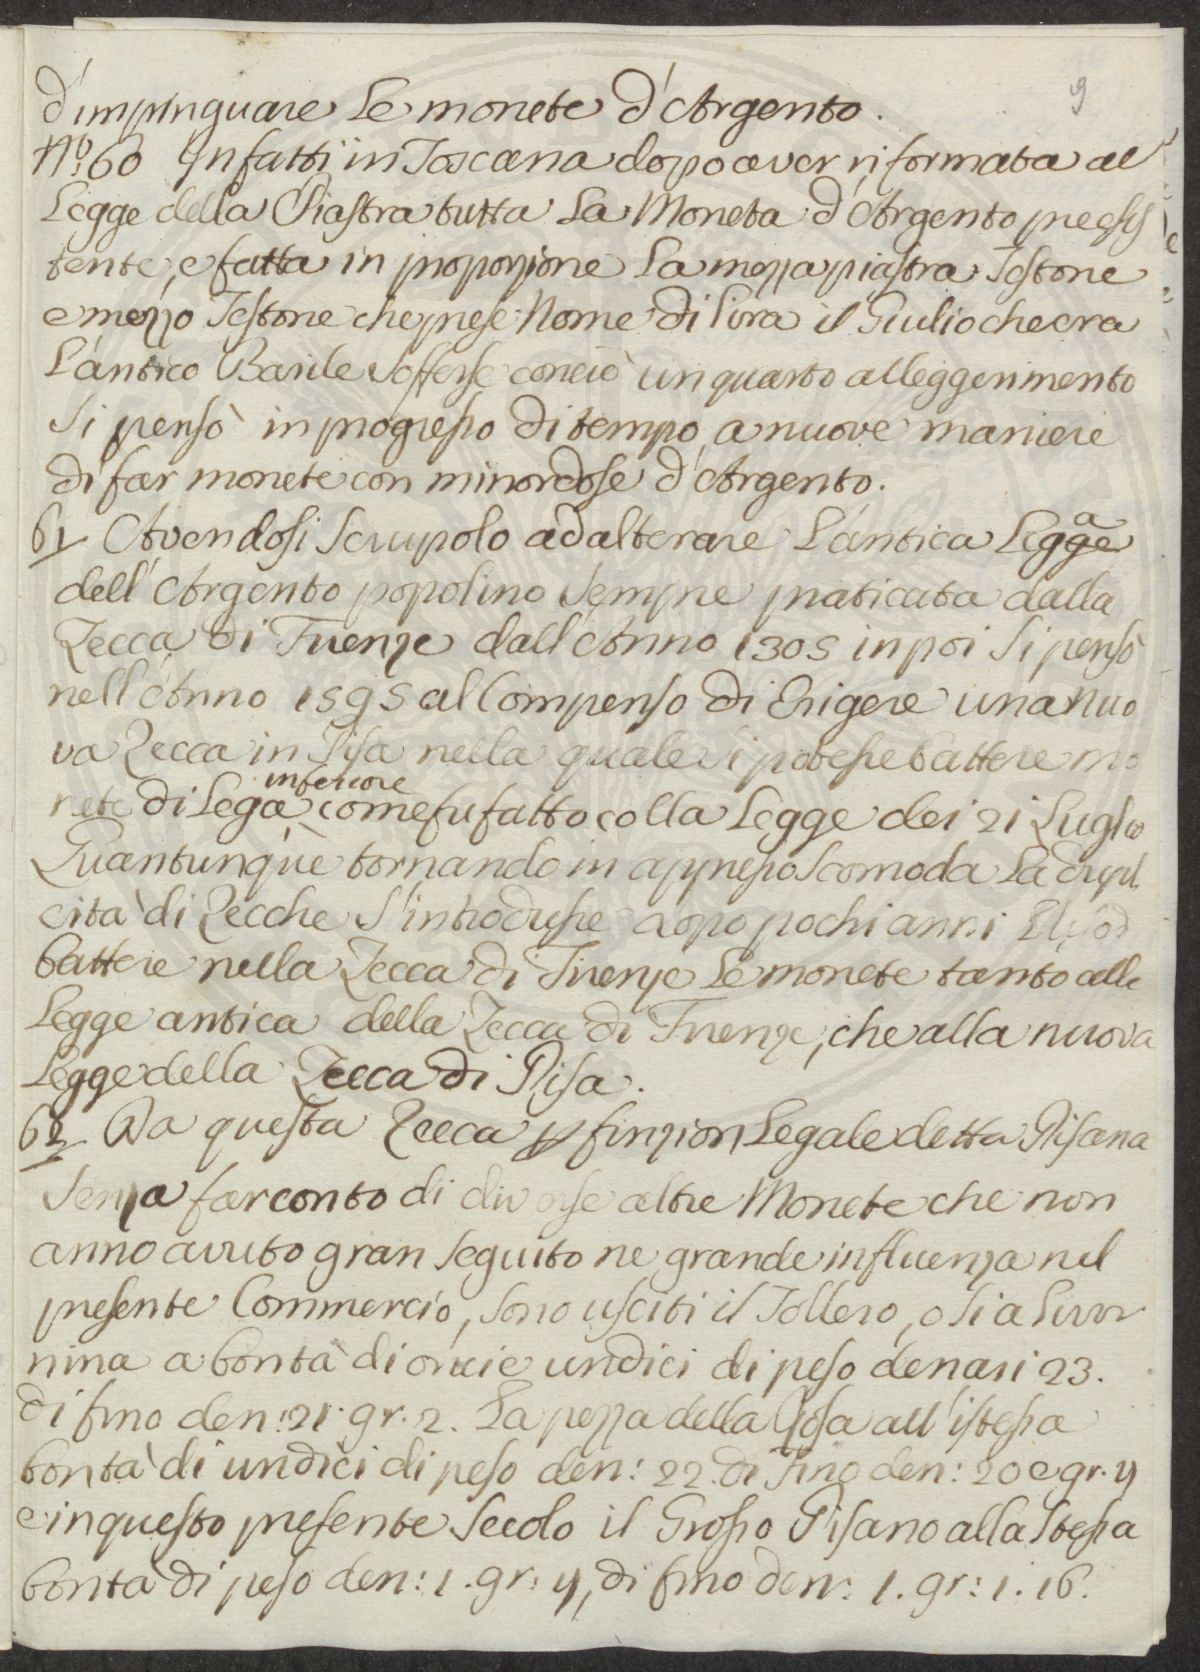 9
d'impinguare Le monete d'Argento.
N.º 60 Infatti in Toscana dopo aver riformata al
Legge della Piastra tutta La Moneta d'Argento preesis
tente, e fatta in proporzione La mezza piastra Testone
e mezzo Testone che prese Nome di Lira il Giulio che era
L'antico Barile sofferse conciò un quarto alleggerimento
Si pensò in progresso di tempo a nuove maniere
di far monete con minor dose d'Argento.
61 Avendosi scrupolo ad alterare L'antica Legga
dell'Argento popolino sempre praticata dalla
Zecca di Firenze dall'Anno 1305 in poi Si pensò
nell'Anno 1595 al Compenso di Erigere una nuo
va Zecca in Pisa nella quale si potesse battere mo
nete di Lega inferiore come fu fatto colla Legge dei 21 Luglio
Quantunque tornando in appresso scomoda La dupli
cità di Zecche s'introdusse dopo pochi anni
battere nella Zecca di Firenze Le monete tanto alla
Legge antica della Zecca di Firenze, che alla nuova
Legge della Zecca di Pisa.
62 Da questa Zecca p finzion Legale detta Pisana
senza far conto di diverse altre Monete che non
anno avuto gran seguito ne grande influenza nel
presente Commercio, sono usciti il Tollero, o sia Livor
nina a bontà di oncie undici di peso denari 23.
di fino den: 21. gr. 2. La pezza della Rosa all'istessa
bontà di undici di peso den: 22. di Fino den: 20 e gr. 4
e in questo presente Secolo il Grosso Pisano alla stessa
bontà di peso den: 1. gr: 4, di fino den: 1. gr: 1. 16.